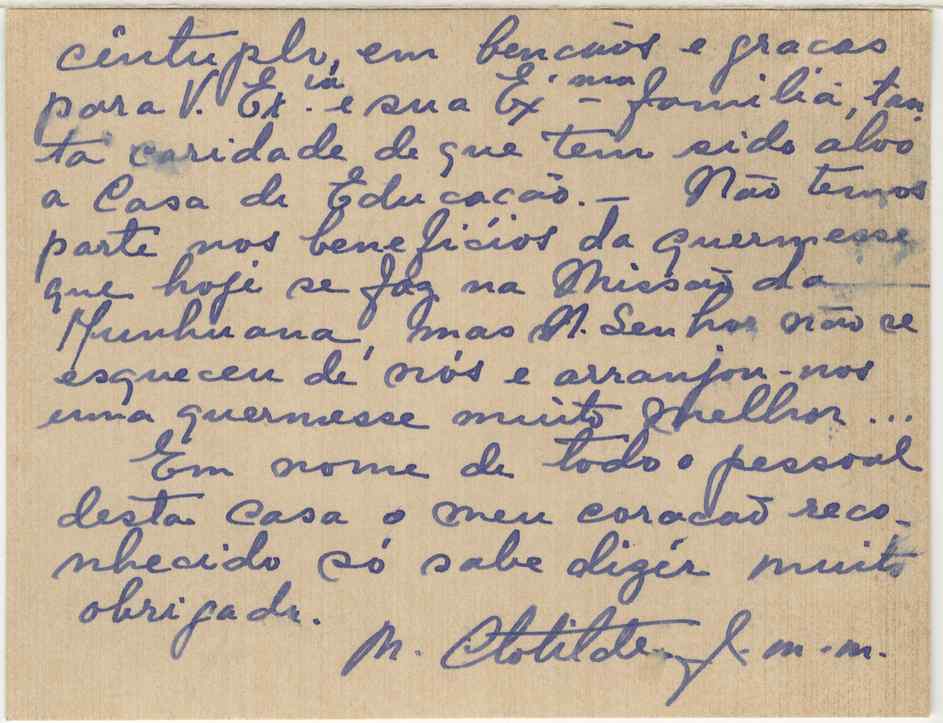 cêntuplo, em bencãos e gracas
para V. Ex.ia e sua Ex.ma família, tan
ta caridade de que tem sido alvo
a Casa de Educacão. — Não temos
parte nos benefícios da quermesse
que hoje se faz na Missão da
Munhuana, mas N. Senhor não se
esqueceu de nós e arranjou-nos
uma quermesse muito melhor...
Em nome de todo o pessoal
desta casa o meu coracão reco-
nhecido só sabe dizer muito
obrigada.
M. Clotilde f. m. m.